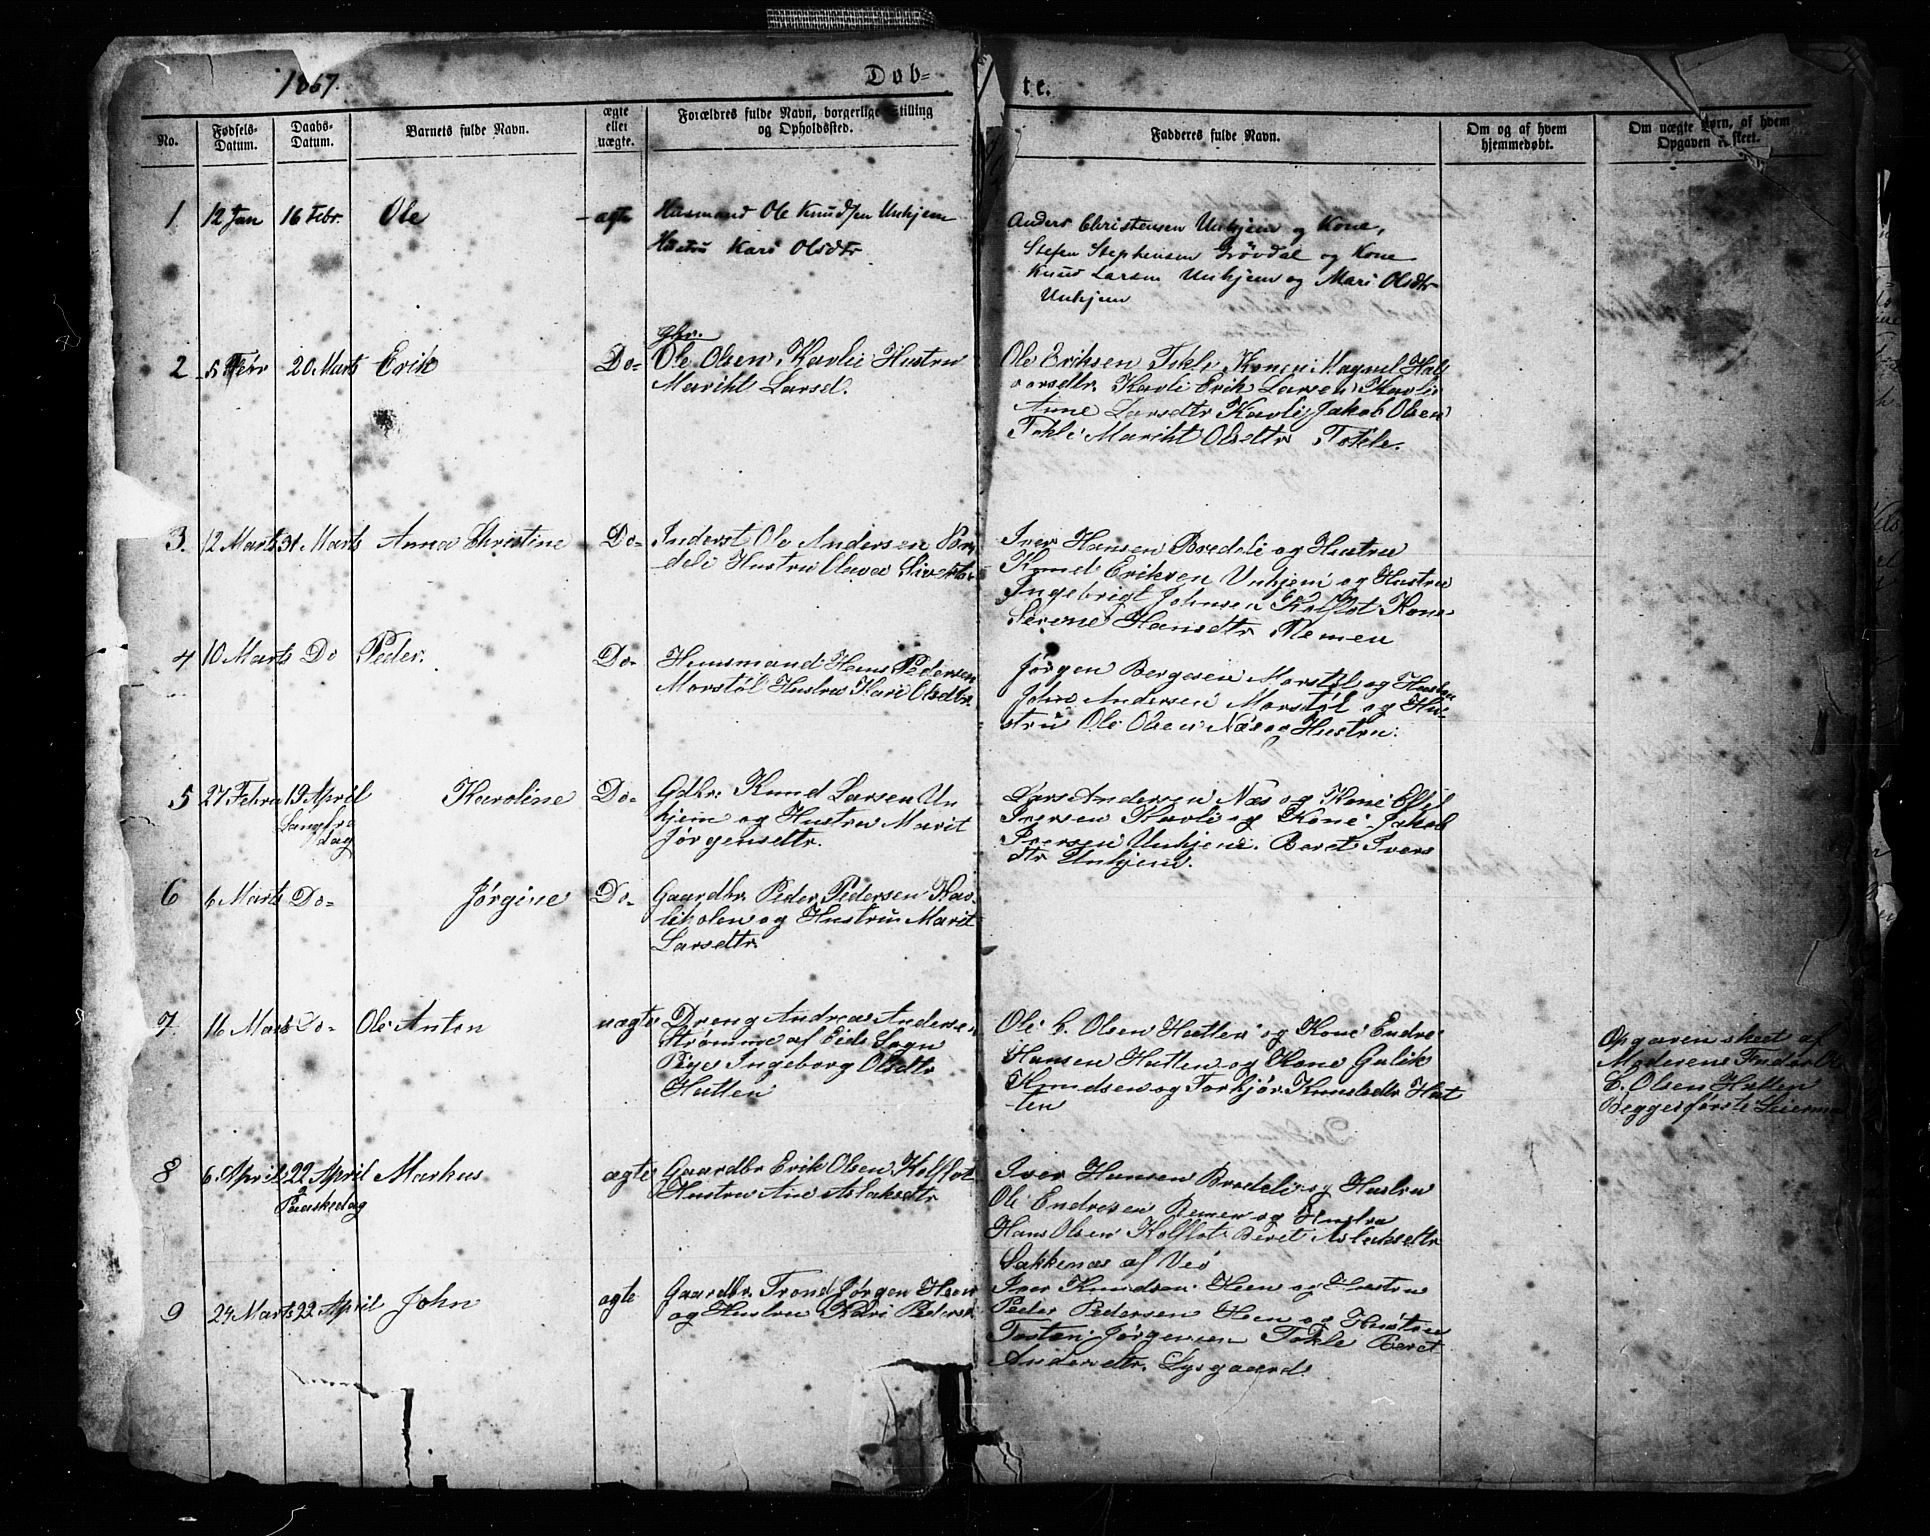 1867.
Døb-
te.
No.
Fødsels-
Datum.
Daabs-
Datum.
Barnets fulde Navn.
ægte
eller
uægte.
Forældres fulde Navn, borgerlige Stilling
og Opholdssted.
Fadderes fulde Navn.
Om og af hvem
hjemmedøbt.
Om uægte Børn, af hvem
Opgaven er skeet.
1 12 Jan 16 Febr. Ole ægte
Husmand Ole Knudsen Unhjem
Hustru Kari Olsdtr
Anders Christensen Unhjem og Kone,
Stefen Stephensen Grövdal og Kone
Knud Larsen Unhjem og Mari Olsdtr
Unhjem
2 5 Febr 20 Marts Erik Do-
gbr.
Ole Olsen Kavli Hustru
Mariht Larsd.
Ole Eriksen Tokle Kone Magnil Hal
vorsdtr. Kavli Erik Larsen Kavli
Anne Larsdtr Kavli Jakob Olsen
Tokle Mariht Olsdtr Tokle.
3. 12 Marts 31 Marts Anna Christine Do-
Inderst Ole Andersen Bre
deli Hustru Olava Sivertsd
Iver Hansen Bredeli og Hustru
Knud Eriksen Unhjem og Hustru
Ingebrigt Johnsen Kolflot Kone
Serene Hansdtr Nemen
4 10 Marts Do Peder. Do-
Huusmand Hans Pedersen
Morstøl Hustru Kari Olsdtr.
Jørgen Bergesen Morstøl og Hustru
John Andersen Morstøl og Hu-
stru Ole Olsen Næs og Hustru.
5 27 Febru 19 April Karoline Do-
Langfre
dag
Gdbr. Knud Larsen Un
hjem og Hustru Marit
Jørgensdtr.
Lars Andersen Næs og Kone
Iversen Kavli og Kone Jakob
Iversen Unhjem. Beret Ivers
dtr Unhjem.
6 6 Marts Do- Jørgine Do-
Gaardbr. Peder Pedersen Kav
liholen og Hustru Marit
Larsdtr.
7. 16 Marts Do- Ole Anton uægte
Dreng Andreas Anderse
Strømme af Eids Sogn
Pige Ingeborg Olsdtr
Hatten
Ole C. Olsen Hatten og Kone Endre
Hansen Hatten og Kone Gulik
Knudsen og Torbjør Knudsdtr Hat
ten
Opgaven skeet af
Moderens Fader Ole
C. Olsen Hatten
Begges første Leierm
8 6 April 22 April Markus ægte
2
Paaskedag
Gaardbr Erik Olsen Kolflot
Hustru Ane Aslaksdtr
Iver Hansen Bredeli og Hustru
Ole Endresen Nemen og Hustru
Hans Olsen Kolflot Beret Aslaksdtr
Sakkenæs af Veø
9 24 Marts 22 April John ægte
Gaardbr. Trond Jørgen Heen
og Hustru Kari Pedersd
Iver Knudsen Heen og Hustru
Peder Pedersen Hen og Hustru
Tostan Jørgensen Tokle Beret
Andersdtr. Lysgaard.